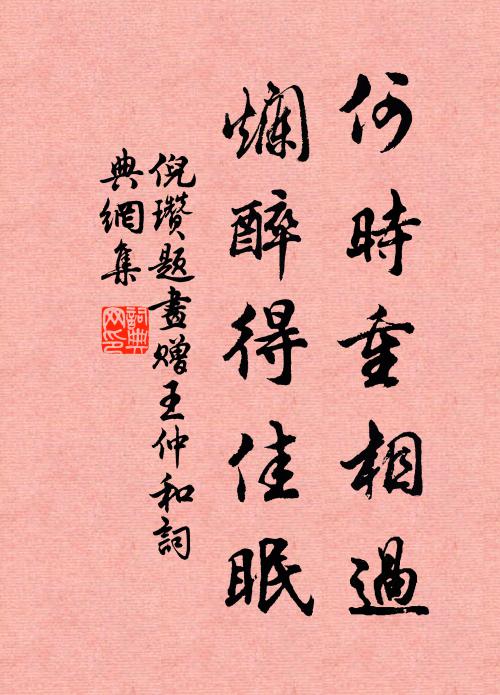 何時重相過
爛醉得佳眠
倪瓚題畫贈王仲和詞
典網集
詞典
网印